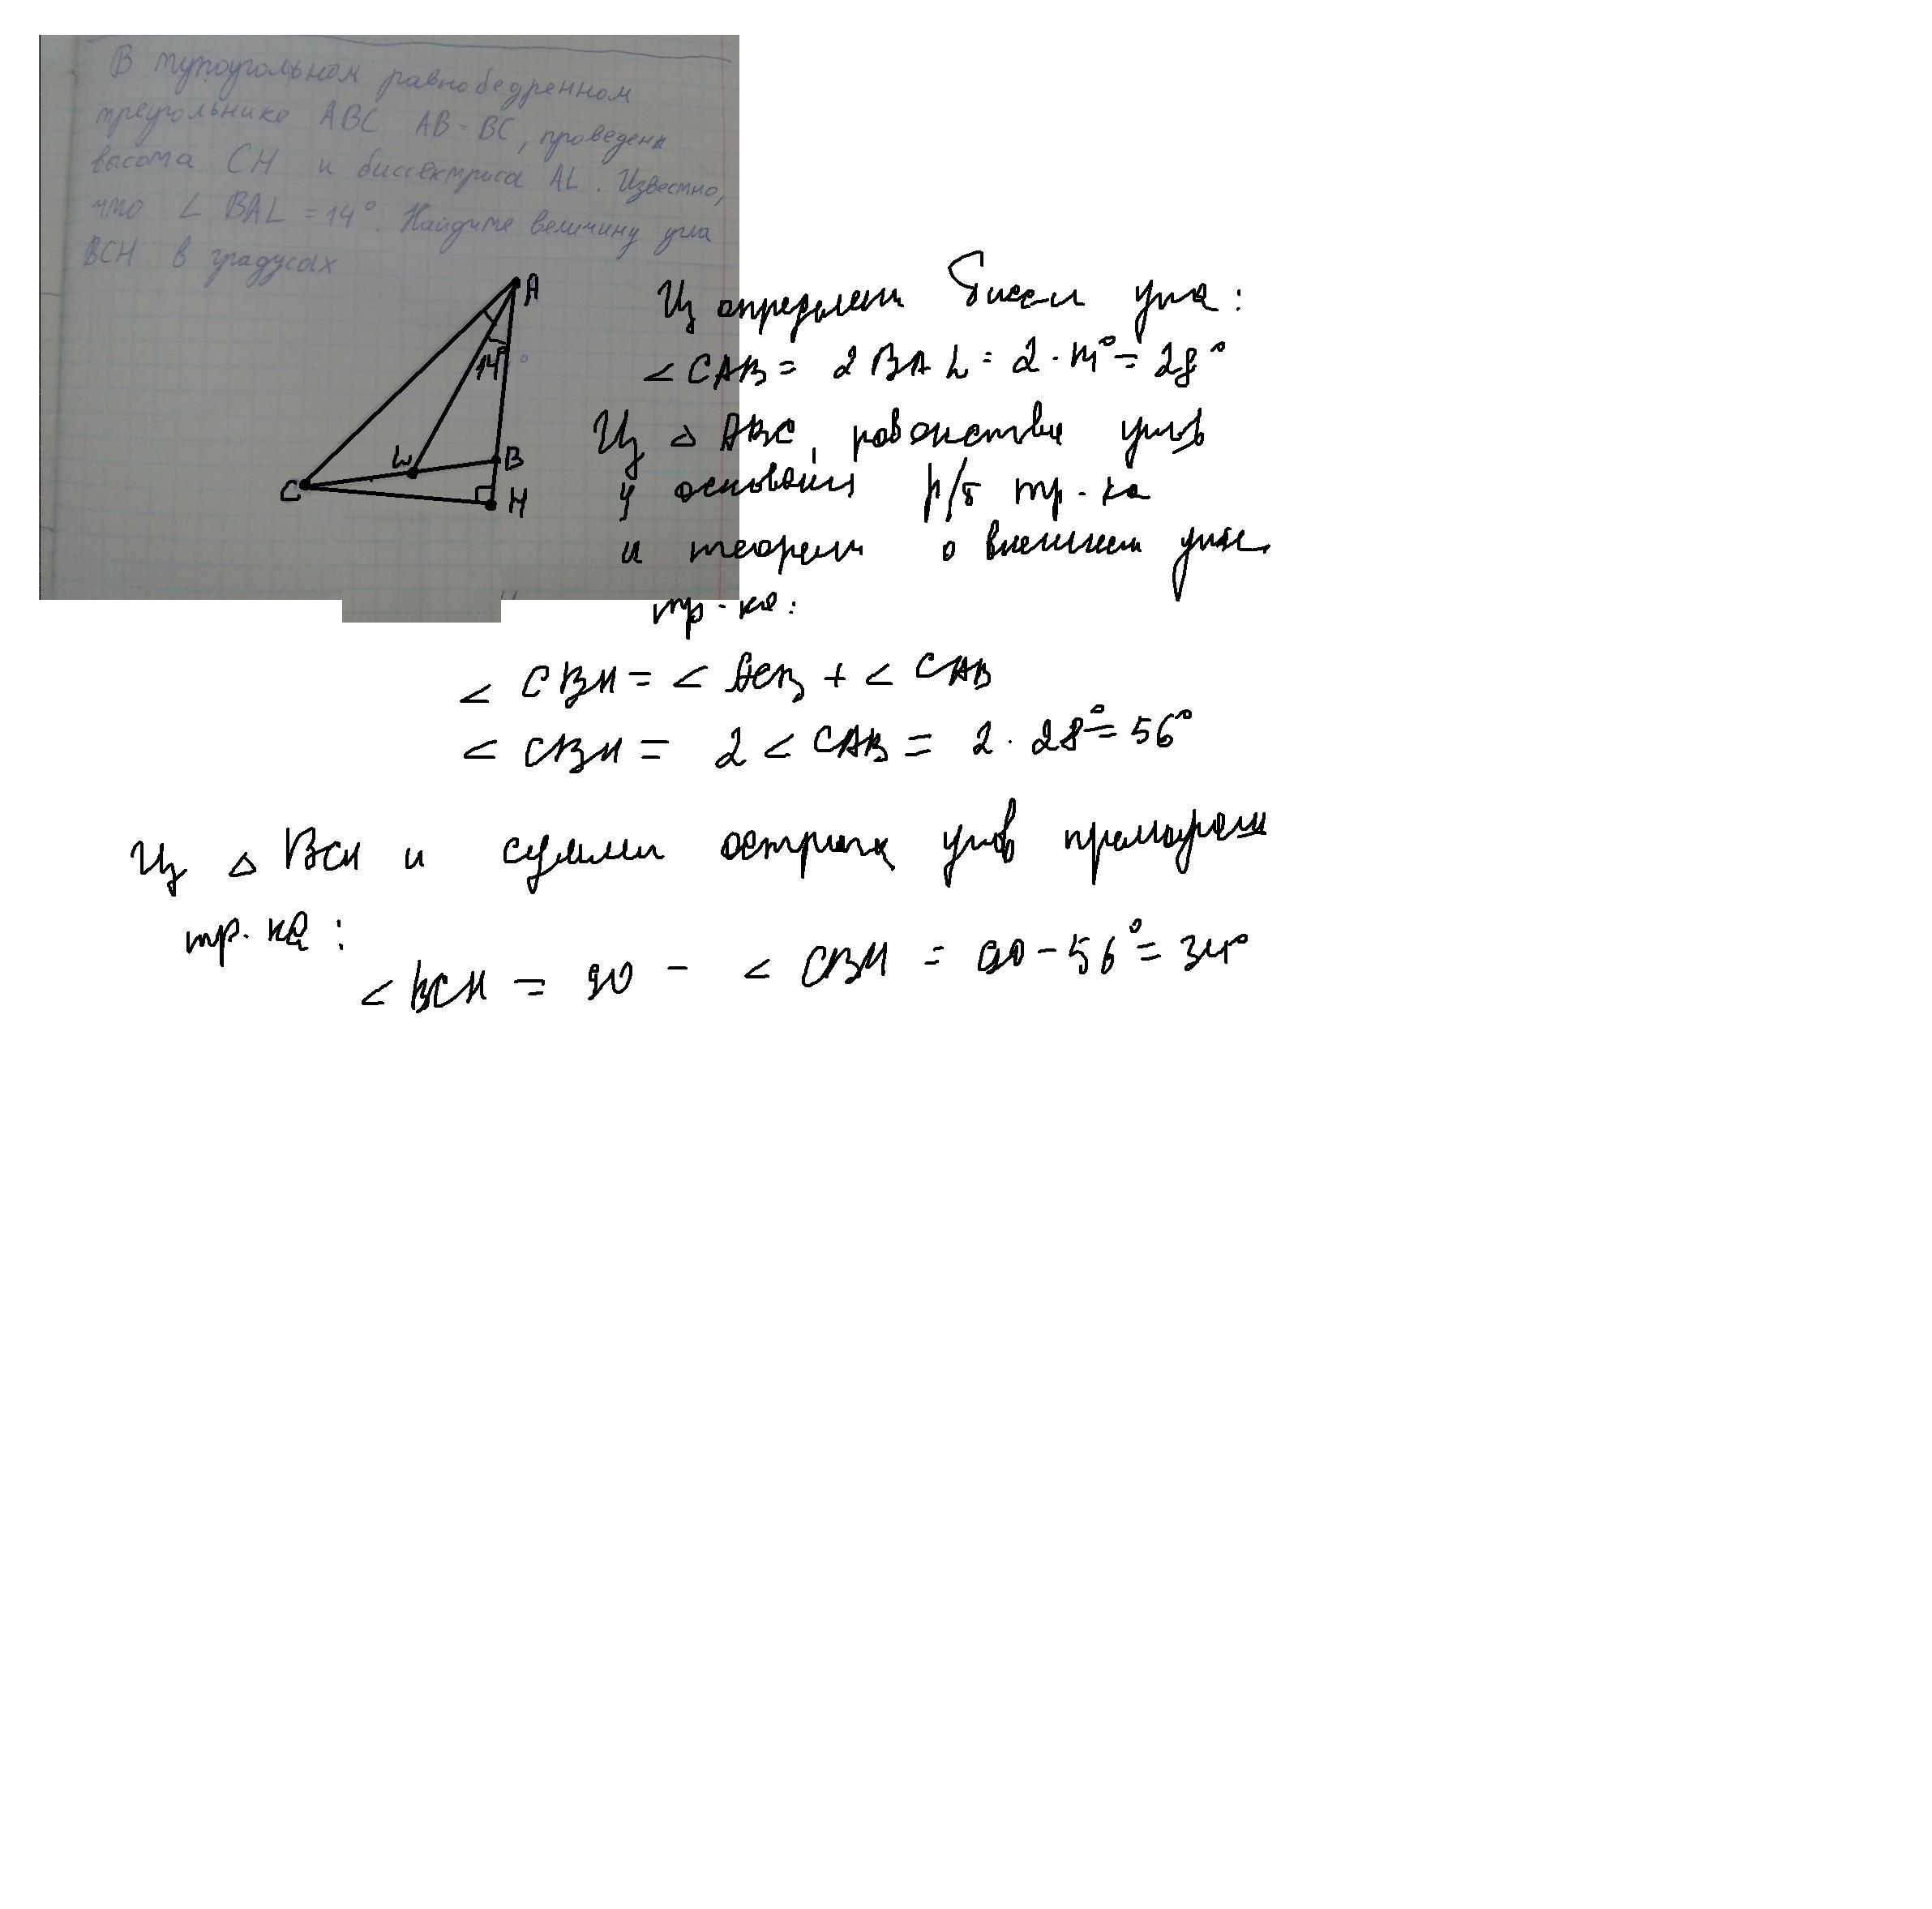 В тупоугольном равнобедренном
треугольнике ABC AB = BC, проведены
высота CH и биссектриса AL. Известно,
что ∠ BAL = 14°. Найдите величину угла
BCH в градусах
A
14°
L
B
C
H
Из определен биссек угла:
∠ CAB = 2 BAL = 2 · 14° = 28°
Из △ ABC, равенства углов
у основания р/б тр-ка
и теорем о внешнем угле
тр-ка:
∠ CBH = ∠ ACB + ∠ CAB
∠ CBH = 2 ∠ CAB = 2 · 28° = 56°
Из △ BCH и суммы острых углов
тр-ка:
∠ BCH = 90 - ∠ CBH = 90 - 56° = 34°